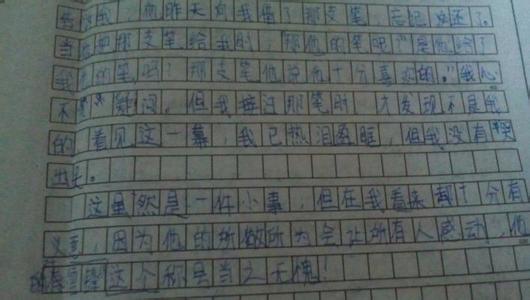 告诉我，他昨天向我借了那支笔，忘记還还了。
当他把那支笔给我时，那他的笔呢？是他给了
我他的笔吗？那支笔他说他十分喜欢的。"我心
不疑问，但我接过那笔时，才发现不是我
的，看见这一幕，我已热泪盈眶，但我没有哭
出来。
这虽然是一件小事，但在我看来却十分有
义意，因为他的所做所为会让所有人感动，他
的这个称号当之无愧！